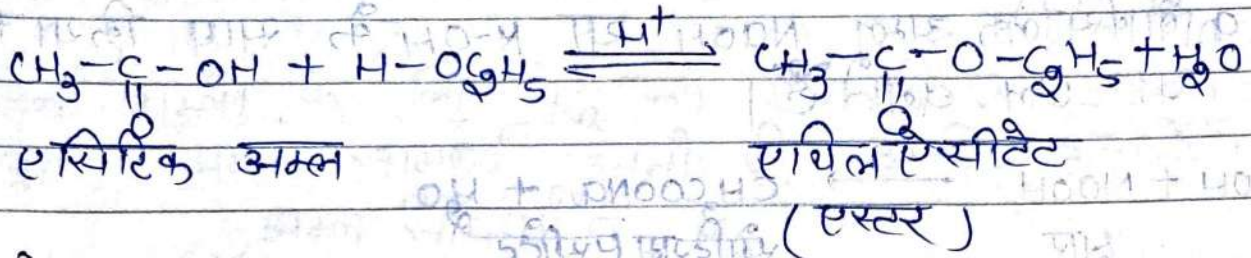 H⁺
CH₃-C-OH + H-OC₂H₅ ⇌ CH₃-C-O-C₂H₅ + H₂O
|| ||
O O
एसिटिक अम्ल एथिल ऐसीटेट
(एस्टर)